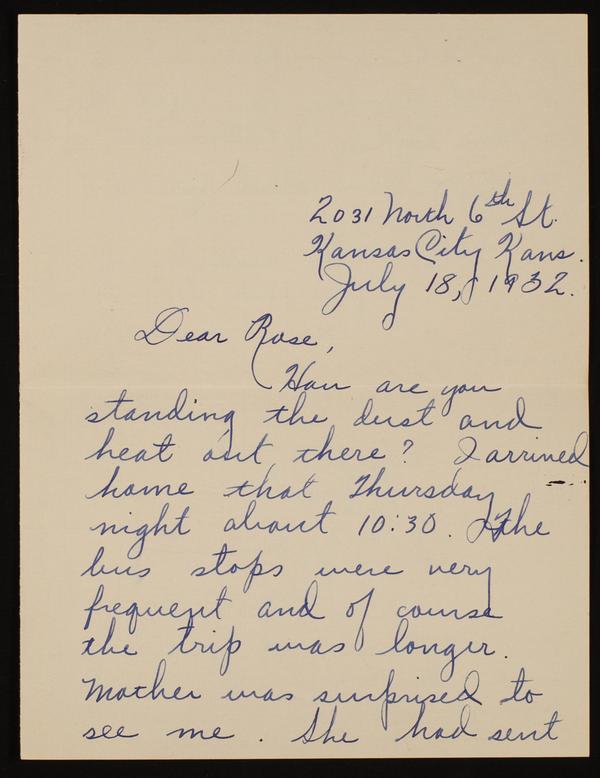 2031 North 6th St.
Kansas City Kans.
July 18, 1932.
Dear Rose,
How are you
standing the dust and
heat out there? I arrived
home that Thursday
night about 10:30. The
bus stops were very
frequent and of course
the trip was longer.
Mother was surprised to
see me. She had sent